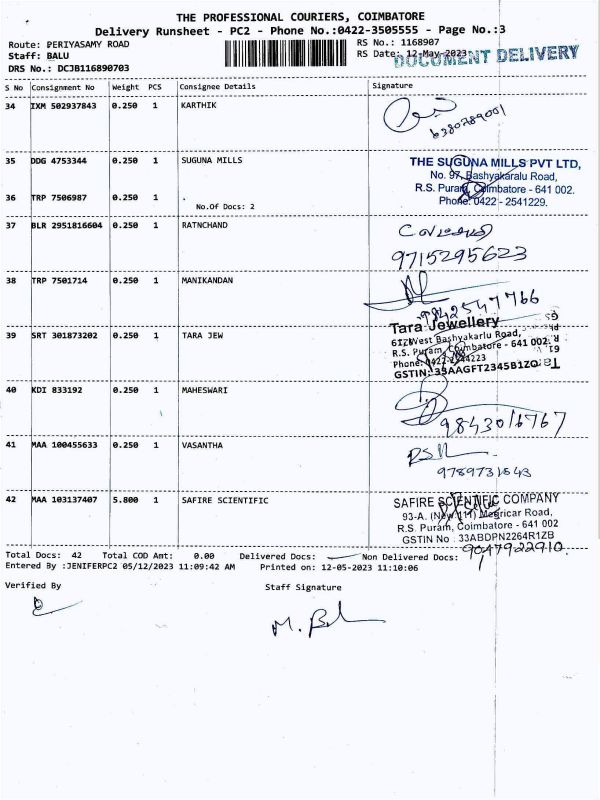 THE PROFESSIONAL COURIERS, COIMBATORE
Delivery Runsheet - PC2 - Phone No.:0422-3505555 - Page No.:3
Route: PERIYASAMY ROAD
RS No.: 1168907
Staff: BALU
RS Date: 12-May-2023
DOCUMENT DELIVERY
DRS No.: DCJB116890703
S No Consignment No Weight PCS Consignee Details Signature
34 IXM 502937843 0.250 1 KARTHIK
6380789001
35 DDG 4753344 0.250 1 SUGUNA MILLS
THE SUGUNA MILLS PVT LTD,
No. 97, Bashyakaralu Road,
R.S. Puram, Coimbatore - 641 002.
Phone: 0422 - 2541229.
36 TRP 7506987 0.250 1 .
No.Of Docs: 2
37 BLR 2951816604 0.250 1 RATNCHAND
9715295623
38 TRP 7501714 0.250 1 MANIKANDAN
9842547766
39 SRT 301873202 0.250 1 TARA JEW
Tara Jewellery
West Bashyakarlu Road,
R.S. Puram, Coimbatore - 641 002.
Phone:
GSTIN: 33AAGFT2345B1ZO
40 KDI 833192 0.250 1 MAHESWARI
9843016767
41 MAA 100455633 0.250 1 VASANTHA
9789731543
42 MAA 103137407 5.800 1 SAFIRE SCIENTIFIC
SAFIRE SCIENTIFIC COMPANY
93-A. (New 111) Megricar Road,
R.S. Puram, Coimbatore - 641 002
GSTIN No : 33ABDPN2264R1ZB
9047922910
Total Docs: 42 Total COD Amt: 0.00 Delivered Docs: Non Delivered Docs:
Entered By :JENIFERPC2 05/12/2023 11:09:42 AM Printed on: 12-05-2023 11:10:06
Verified By Staff Signature